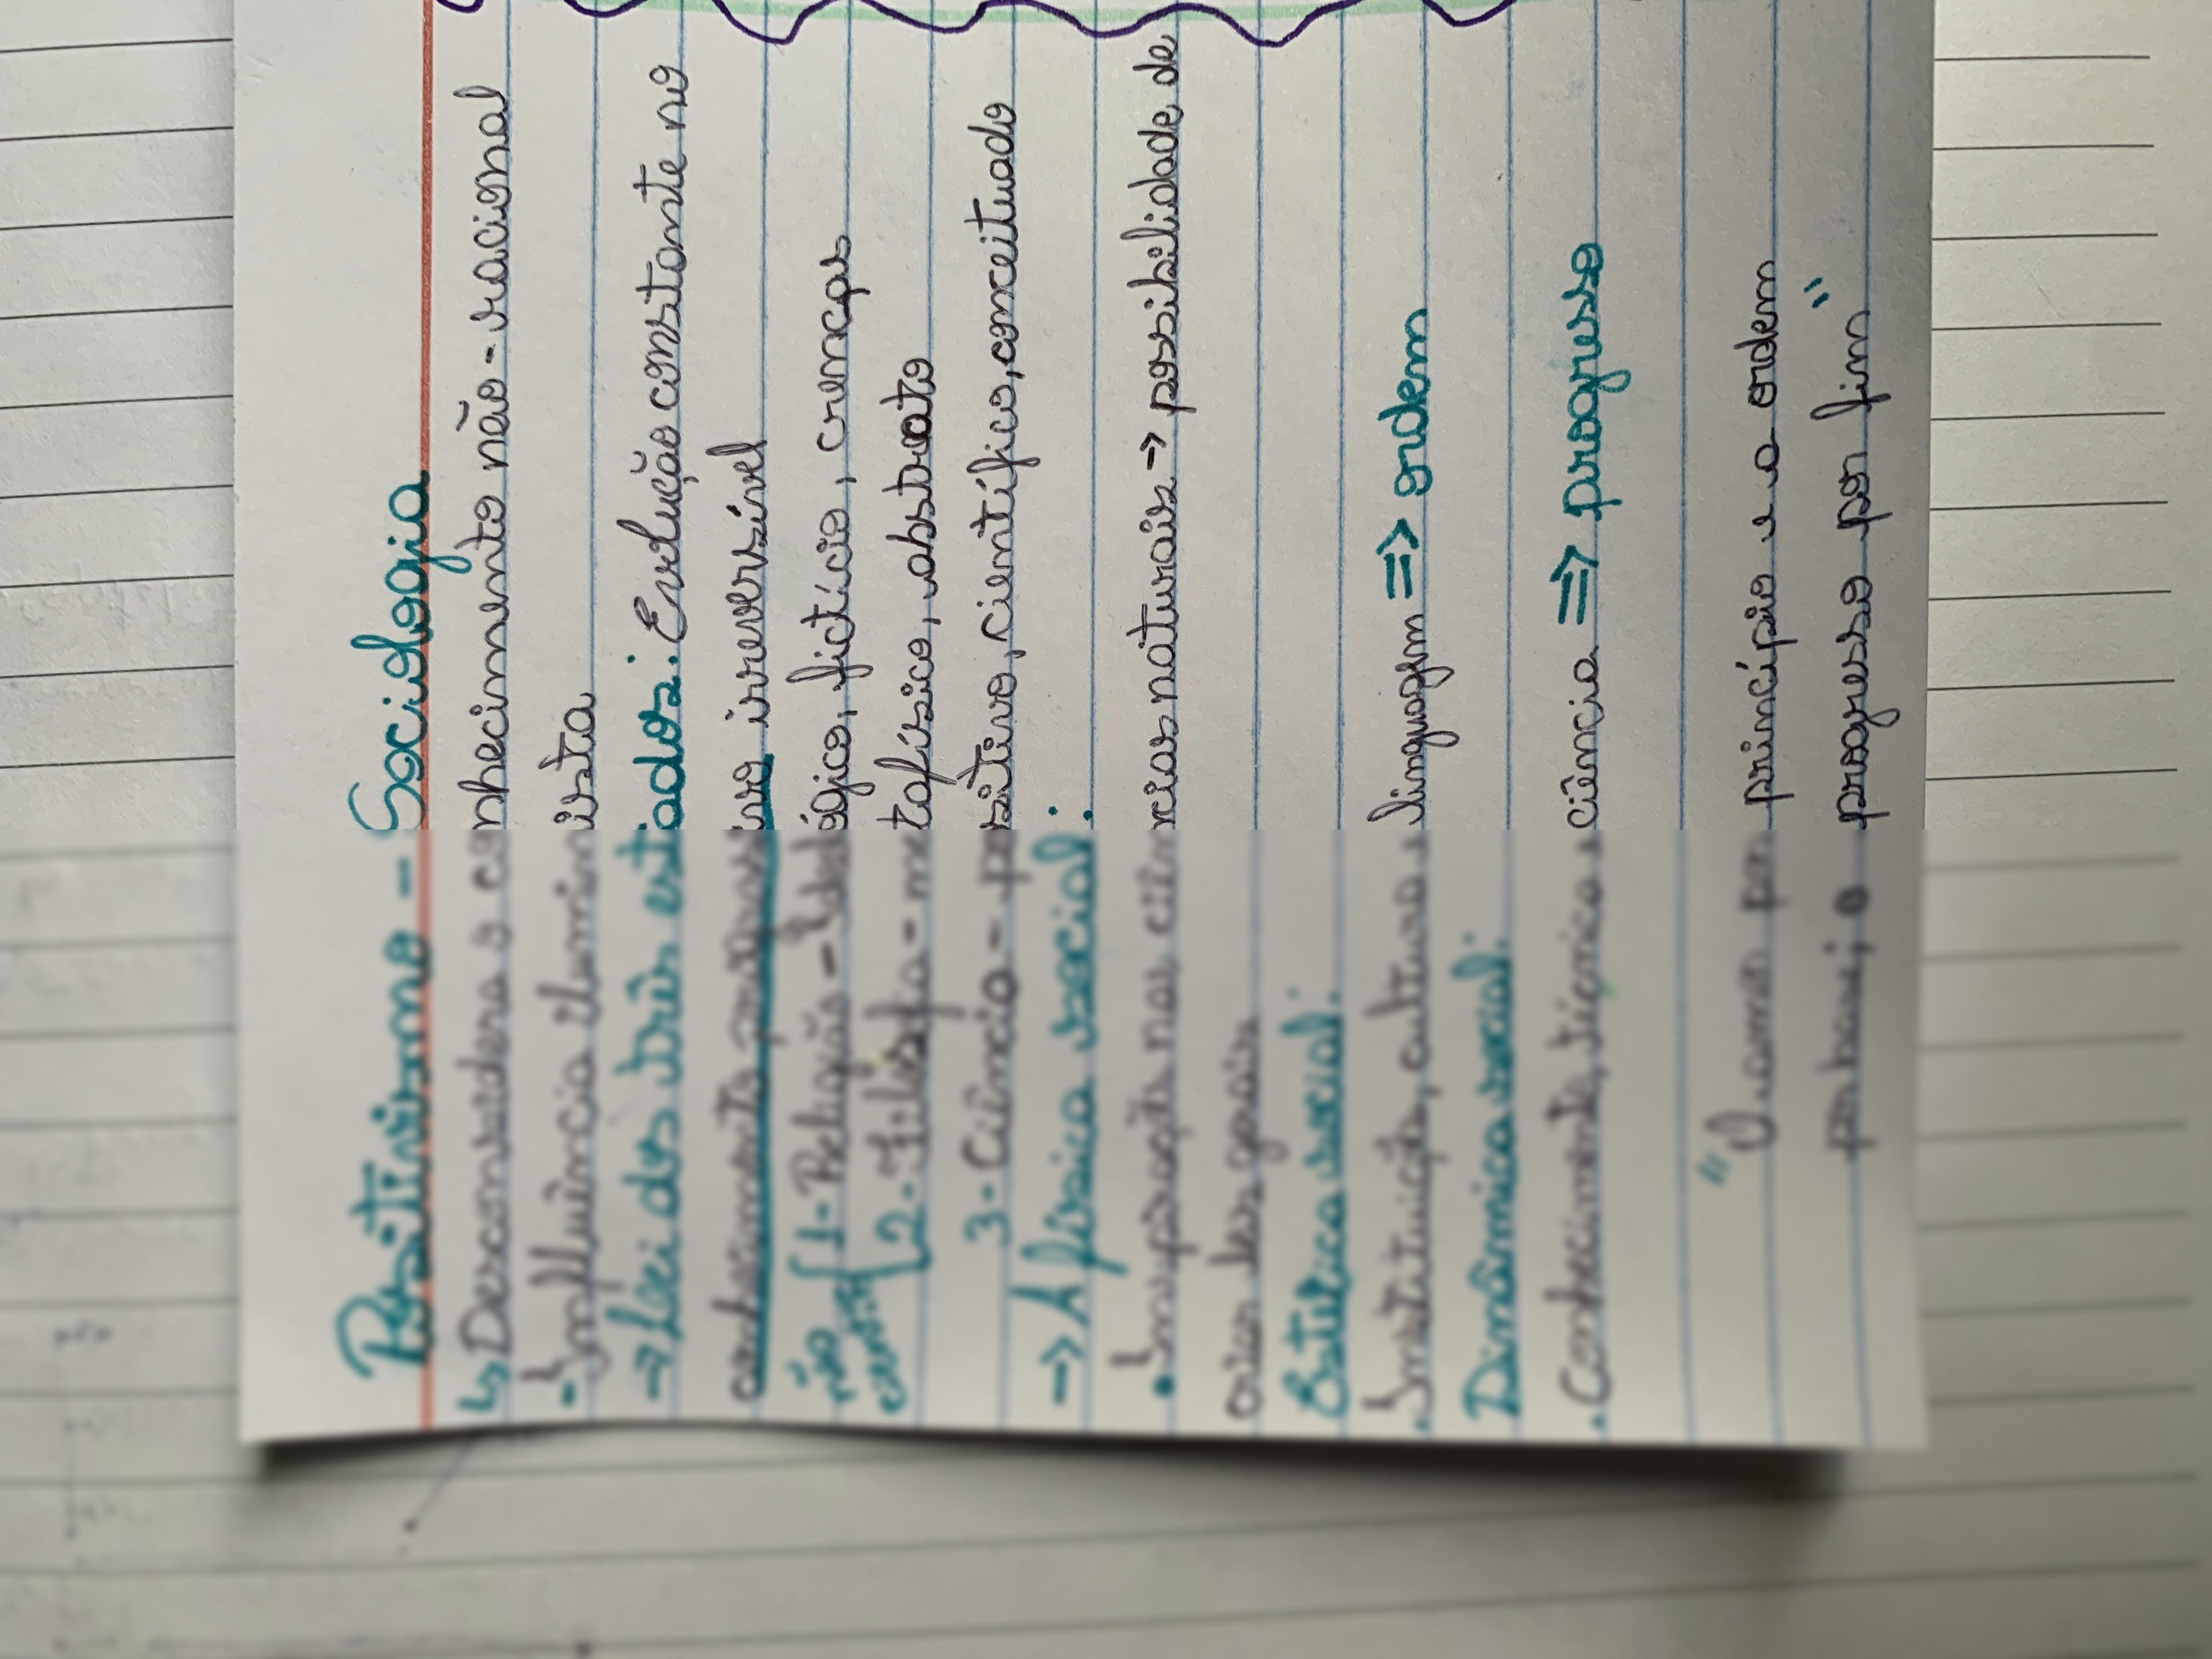 Positivismo - Sociologia
↳ Desconsidera o conhecimento não-racional
- Influência iluminista
→ Lei dos três estados: Evolução constante no
conhecimento, progressivo, irreversível
não científico { 1- Religião - Ideológico, fictício, crenças
2- Filosofia - metafísico, abstrato
3- Ciência - positivo, científico, conceituado
→ A física social:
• Inspiração nas ciências naturais → possibilidade de
criar leis gerais
Estática social:
. Instituição, cultura e linguagem ⇒ ordem
Dinâmica social:
. Conhecimento, técnica e ciência ⇒ progresso
"O amor por princípio e a ordem
por base; o progresso por fim"